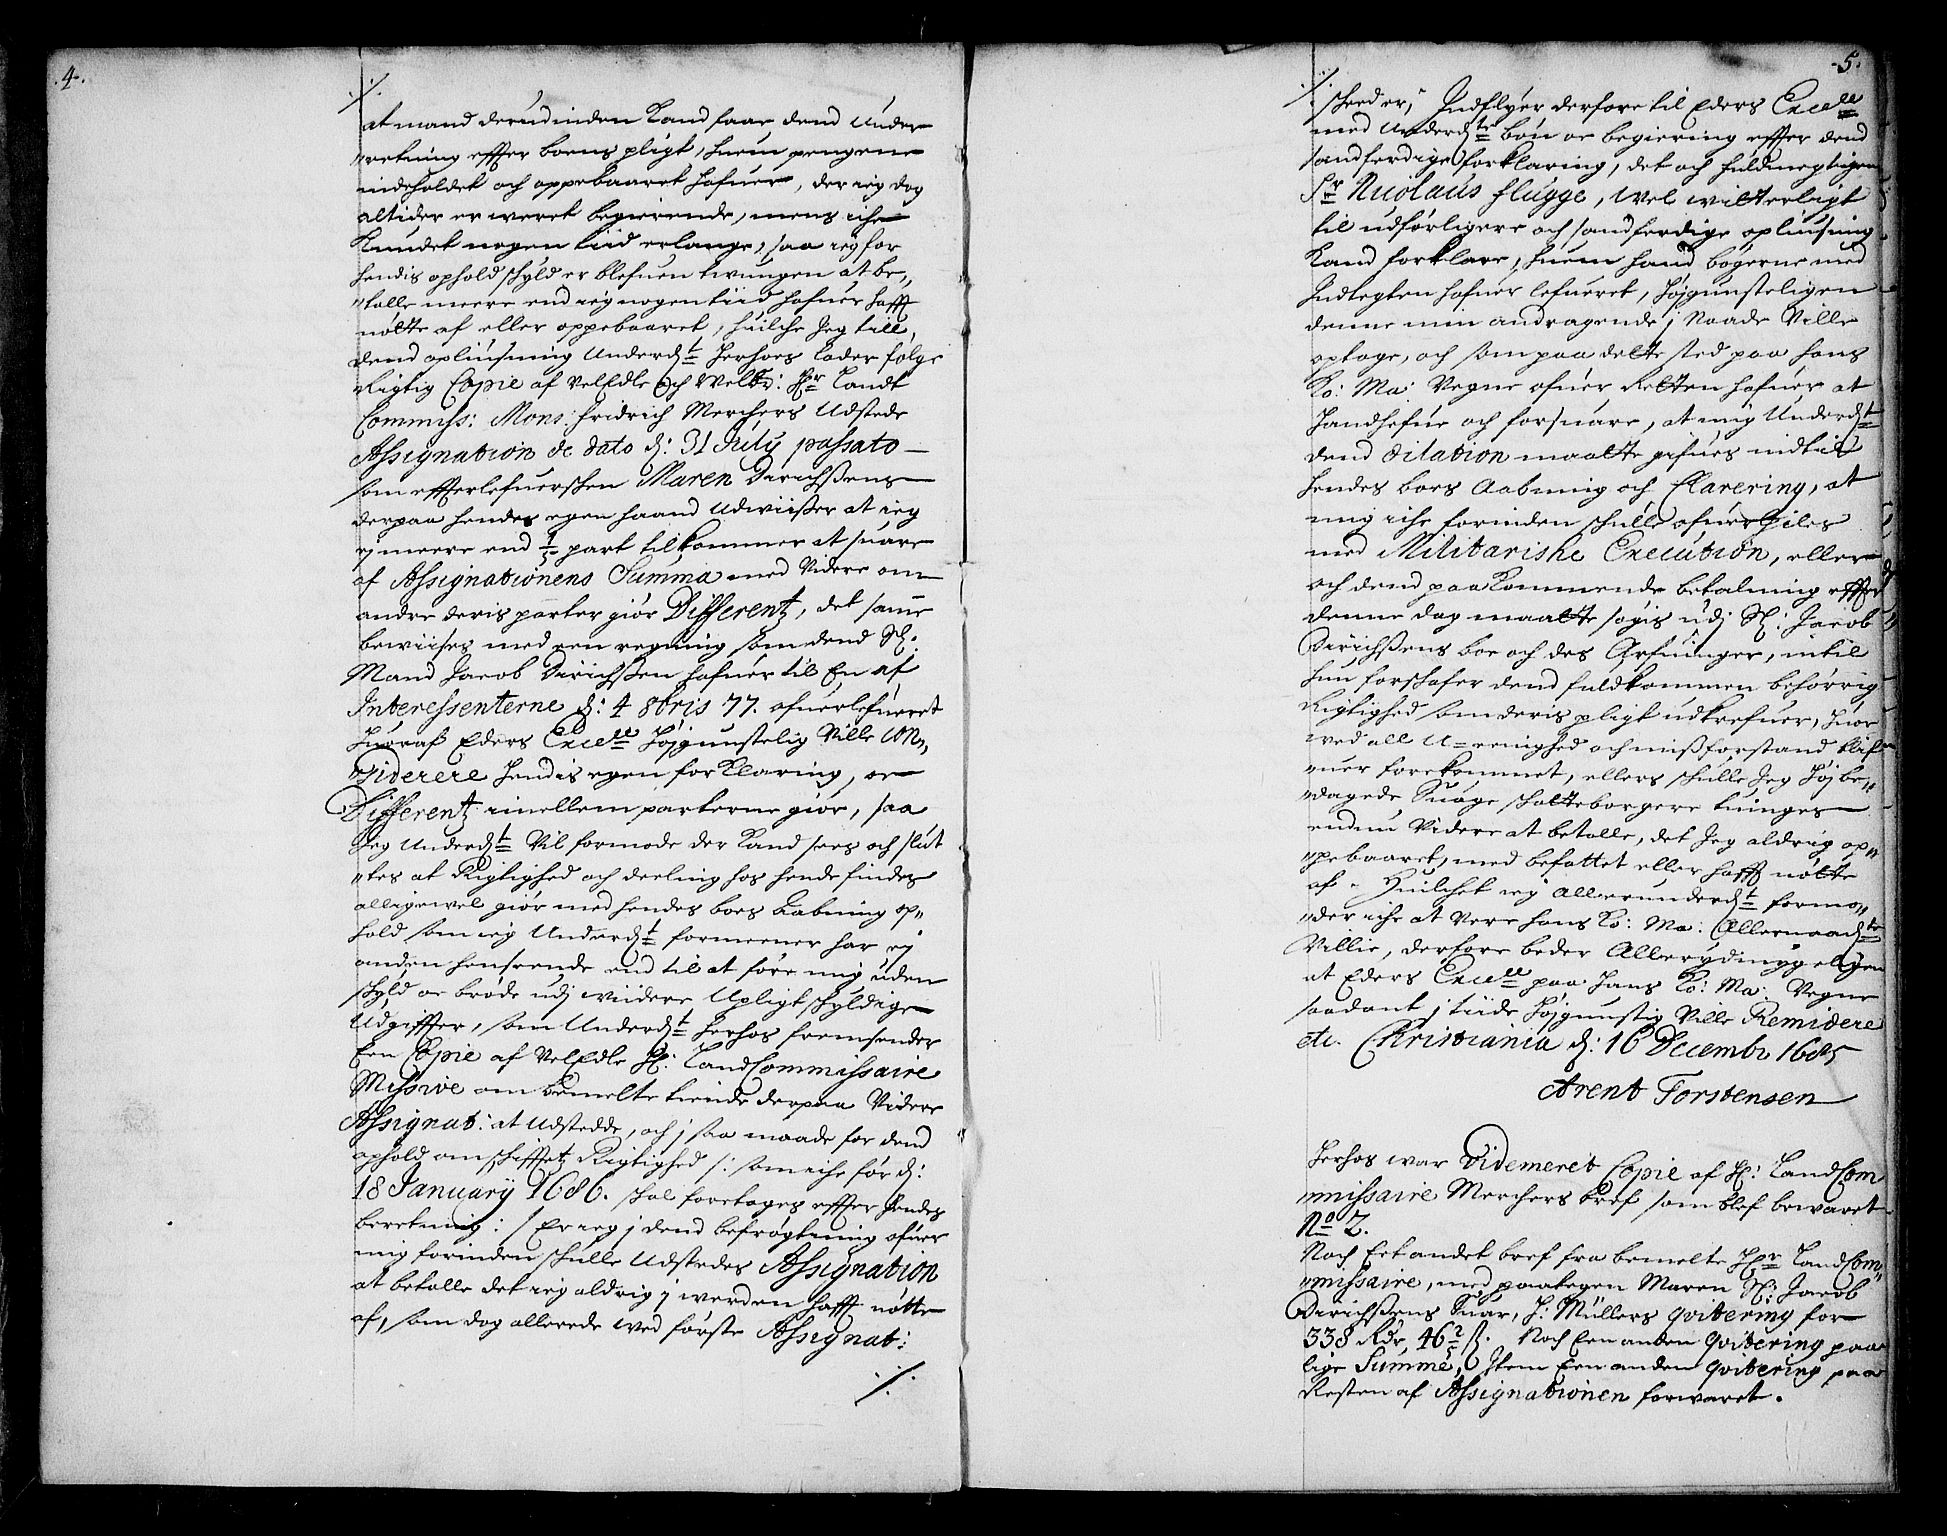 .4.
./.
at mand derud inden Kand faae dend Under
"retning effter boens pligt, huem pengene
indeholdet och oppebaaret hafuer, der ieg dog
altider er weret begierende, mens iche
Kundet nogen tiid erlange, saa ieg for
hendis ophold schyld er blefuen twungen at be,,
"talle meere end ieg nogen tiid hafuer hafft
nötte af eller oppebaaret, huilche Jeg till
dend opliusning Underd:t herhoes lader følge
Rigtig Copie af VelEdle och Welb: Hr Landt
Commiss: Mons: Fridrich Merchers Udstede
Assignation de dato d: 31 July passato
som effterlefuerschen Maren Dirichssens
derpaa hendes egen haand Udwiisser at ieg
ej meere end part tilkommer at suare
af Assignationens Summa med Videre om
andre deris parter giör Differentz, det samme
bewiises med een regning som dend Sl:
Mand Jacob Dirichssen hafuer til En af
Interessenterne d: 4 8bris 77. ofuerlefueret
huoraf Eders Excell Højgunstelig Ville Con,,
"siderere hendis egen forKlaring, oc
Differentz imellem parterne giör, saa
Jeg Underd:t Vil formode der Kand sees och slut
"tes at Rigtighed och deeling hos hende findes
alligewel giör med hendes boes Aabning op"
hold som ieg Underd:t formeener har ej
anden henseende end til at före mig uden
schyld oc bröde udj widere Upligtschyldige
Udgiffter, som Underd:t herhos fremsendes
Een Copie af VelEdle H: LandCommissaire
Missive om bemelte tiende derpaa Videre
Assignat: at Udstedde, och j saa maade for dend
ophold om schifftetz Rigtighed /: som iche för d:
18 January 1686. skal foretages effter hendes
beretning :/ Er ieg j dend befrögtning ofuer
mig forinden schulle Udstedes Assignation
at betalle det ieg aldrig j werden hafft nötte
af, som dog allerede wed förste Assignat:
./.
.5.
./.
scheed er, Indflyer derfore til Eders Excell
med Underd:te bön oc begiering effter dend
sandferdige forklaring, det och fuldmegtigen
Sr Nicolaus Flügge, Wel witterligt
til udförligere och sandferdige opliusning
Kand forklare, huem hand bögerne med
Indtegten hafuer lefueret, Höjgunsteligen
denne min andragende j Naade Ville
optage, och som paa dette sted paa hans
Ko: Ma: Vegne ofuer Retten hafuer at
Handhefue och forsuare, at mig Underd:t
dend dilation maatte gifues indtil
hendes boes Aabning och Clarering, at
mig iche forinden schulle ofuerhiles
med Militarishe Execution, eller
och dend paaKommende betalning effter
denne dag maatte søgis udj Sl: Jacob
Dirichssens boe och des Arfuinger, intil
hun forschafer dend fuldkommen behörrig
Rigtighed som deris pligt udkrefuer, huor
wed all U=eenighed och misforstand blif
"uer forekommet, ellers schulle Jeg höj be,,
"dagede Suage schatteborgere tuinges
endnu Videre at betalle, det Jeg aldrig op"
"pebaaret, med befattet eller hafft nötte
af. Huilchet ieg Allerunderd:t formo"
"der iche at Vere hans Ko: Ma: Allernaad:te
Villie, derfore beder Allerydmygeligen
at Eders Excell paa Hans Ko: Ma: Vegne
saadant j tiide Höjgunstig Ville Remidere
etc. Christiania d: 16 Decembr 1685
Arent Torstensen
Herhos war Videmeret Copie af H: LandCom
"missaire Merchers bref som blef bewaret
No 2.
Noch Eet andet bref fra bemelte Hr LandCom,,
"missaire, med paategen Maren Sl: Jacob
Dirichssens Suar, H: Müllers qvitering for
338 Rdr, 46 ß. Noch Een anden Qvitering paa
lige Summe, Item Een anden qvitering paa
Resten af Assignationen forwaret.